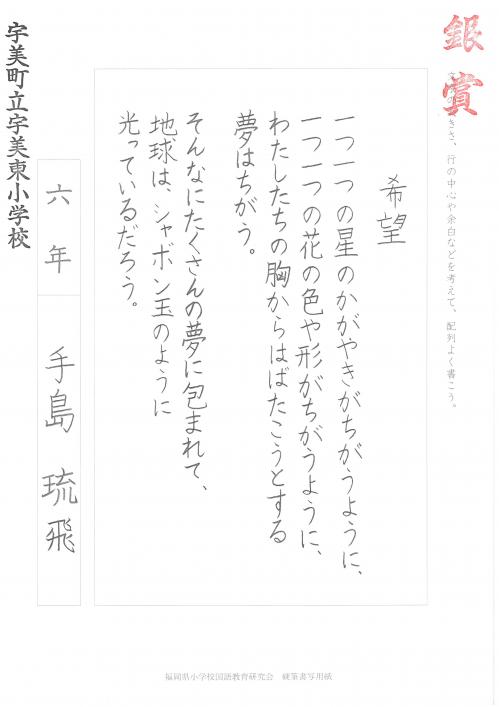 銀賞
きさ、行の中心や余白などを考えて、配列よく書こう。
希望
一つ一つの星のかがやきがちがうように、
一つ一つの花の色や形がちがうように、
わたしたちの胸からはばたこうとする
夢はちがう。
そんなにたくさんの夢に包まれて、
地球は、シャボン玉のように
光っているだろう。
六年 手島琉飛
宇美町立宇美東小学校
福岡県小学校国語教育研究会 硬筆書写用紙